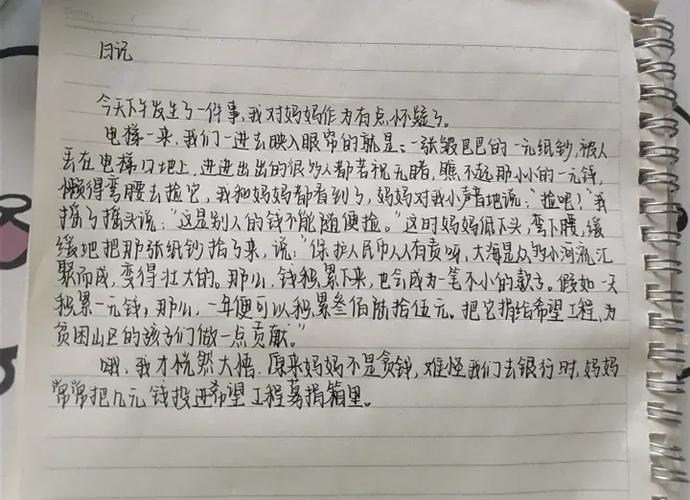 Date.
日记
今天下午发生了一件事,我对妈妈作为有点怀疑了。
电梯一来,我们一进去映入眼帘的就是:一张皱巴巴的一元纸钞,被人
丢在电梯口地上,进进出出的很多人都若视无睹,瞧不起那小小的一元钱,
懒得弯腰去捡它,我和妈妈都看到了,妈妈对我小声地说:"捡吧!"我
摇了摇头说:"这是别人的钱不能随便捡。"这时妈妈低下头,弯下腰,缓
缓地把那张纸钞拾了来,说:"保护人民币人人有责呀,大海是众多小河流汇
聚而成,变得壮大的。那么,钱积累下来,也会成为一笔不小的款子。假如一天
积累一元钱,那么,一年便可以积累叁佰陆拾伍元。把它捐给希望工程,为
贫困山区的孩子们做一点贡献。"
哦,我才恍然大悟,原来妈妈不是贪钱,难怪我们去银行时,妈妈
常常把几元钱投进希望工程募捐箱里。